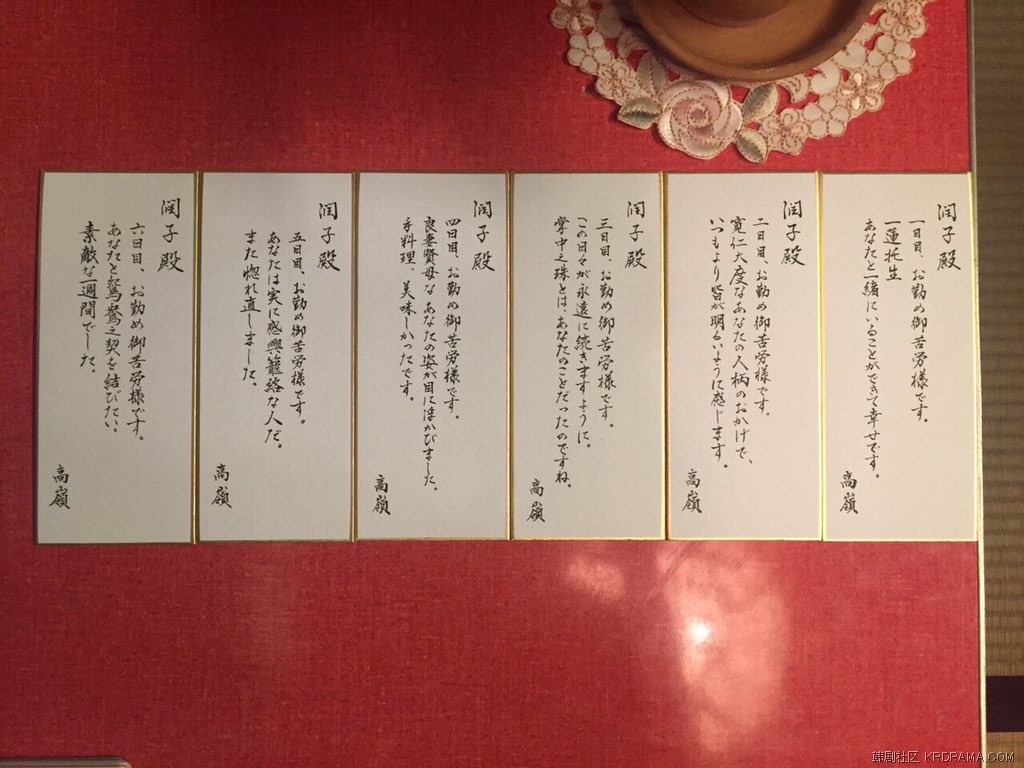 潤子殿
一日目、お勤め御苦労様です。
一蓮托生
あなたと一緒にいることができて幸せです。
高嶺
潤子殿
二日目、お勤め御苦労様です。
寛仁大度なあなたの人柄のおかげで、
いつもより皆が明るいように感じます。
高嶺
潤子殿
三日目、お勤め御苦労様です。
この日々が永遠に続きますように。
掌中之珠とは、あなたのことだったのですね。
高嶺
潤子殿
四日目、お勤め御苦労様です。
良妻賢母なあなたの姿が目に浮かびました。
手料理、美味しかったです。
高嶺
潤子殿
五日目、お勤め御苦労様です。
あなたは実に感興籠絡な人だ。
また惚れ直しました。
高嶺
潤子殿
六日目、お勤め御苦労様です。
あなたと鴛鴦之契を結びたい。
素敵な一週間でした。
高嶺
韩剧社区 KRDRAMA.COM